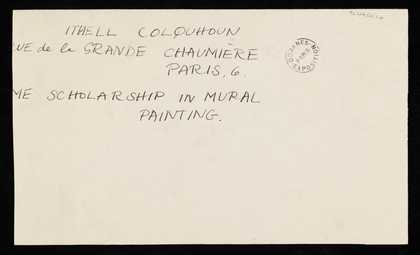 ITHELL COLQUHOUN
UE de la GRANDE CHAUMIÈRE
PARIS, 6.
ME SCHOLARSHIP IN MURAL
PAINTING.
DOUANES
EXPOSITION
PARIS